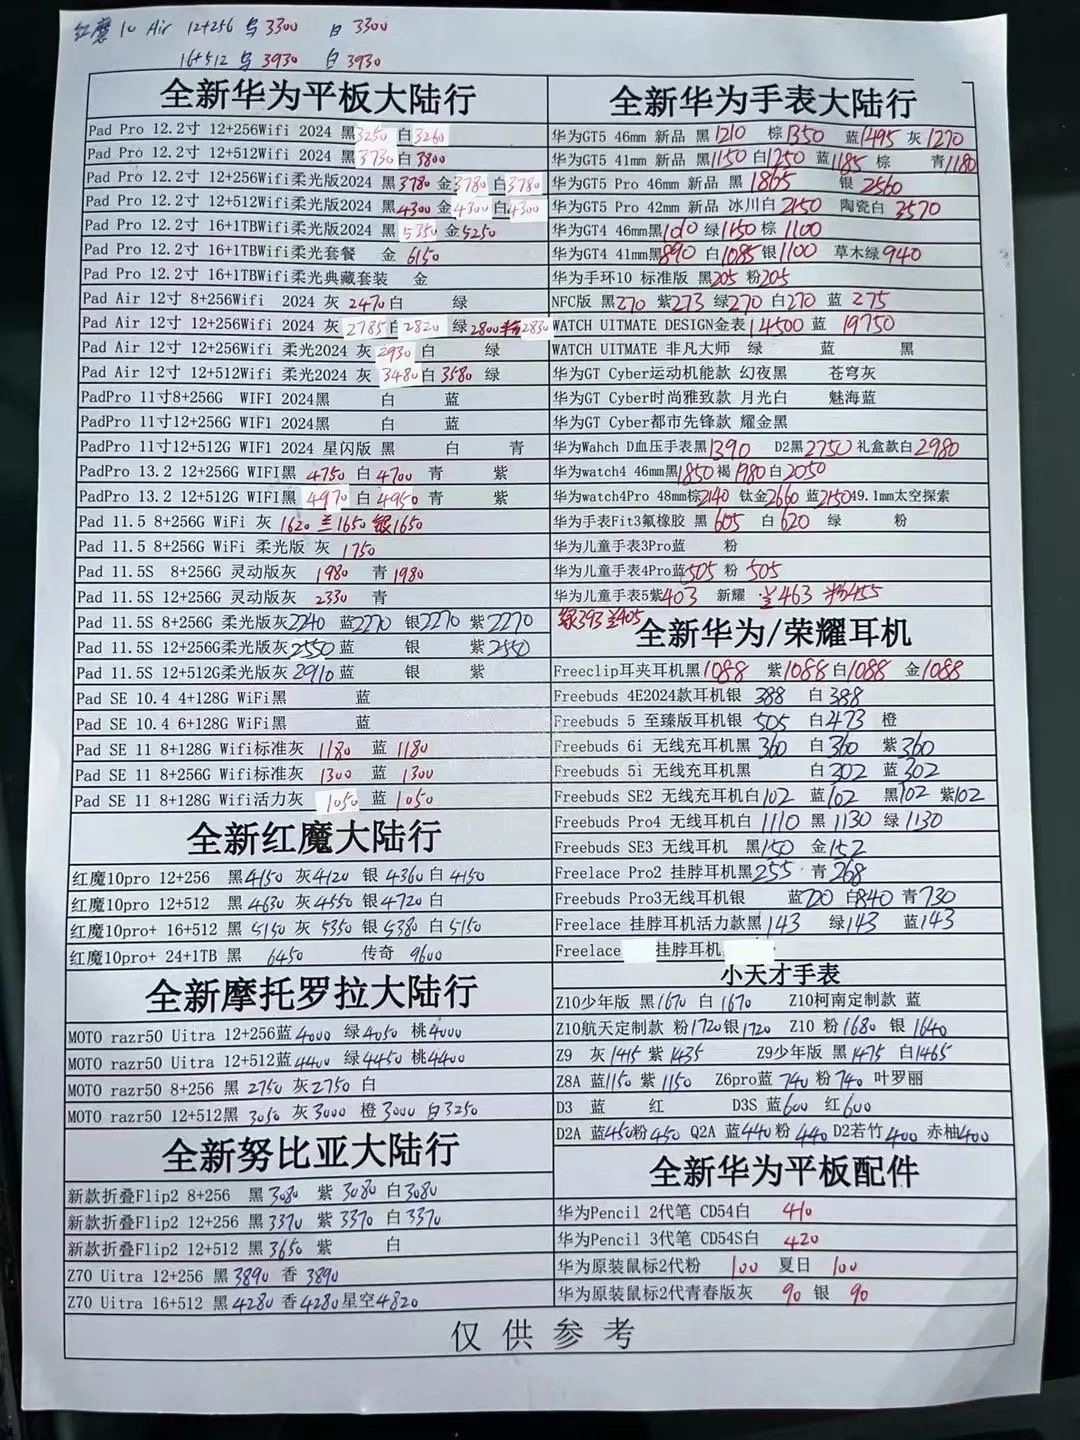 红魔 10 Air 12+256 鸟 3300 白 3300
16+512 鸟 3930 白 3930
全新华为平板大陆行
Pad Pro 12.2寸 12+256Wifi 2024 黑3250 白3260
Pad Pro 12.2寸 12+512Wifi 2024 黑3730 白3800
Pad Pro 12.2寸 12+256Wifi柔光版2024 黑3780 金3780 白3780
Pad Pro 12.2寸 12+512Wifi柔光版2024 黑4300 金4300 白4300
Pad Pro 12.2寸 16+1TBWifi柔光版2024 黑5350 金5250
Pad Pro 12.2寸 16+1TBWifi柔光套餐 金 6150
Pad Pro 12.2寸 16+1TBWifi柔光典藏套装 金
Pad Air 12寸 8+256Wifi 2024 灰 2470 白 绿
Pad Air 12寸 12+256Wifi 2024 灰 2785 2820 绿 2800 2830
Pad Air 12寸 12+256Wifi 柔光2024 灰 2930 白 绿
Pad Air 12寸 12+512Wifi 柔光2024 灰 3480 白 3580 绿
PadPro 11寸8+256G WIFI 2024黑 白 蓝
PadPro 11寸12+256G WIF1 2024黑 白 蓝
PadPro 11寸12+512G WIF1 2024 星闪版 黑 白 青
PadPro 13.2 12+256G WIFI黑 4750 白 4700 青 紫
PadPro 13.2 12+512G WIFI黑 4970 白 4950 青 紫
Pad 11.5 8+256G WiFi 灰 1620 兰1650 银1650
Pad 11.5 8+256G WiFi 柔光版 灰 1750
Pad 11.5S 8+256G 灵动版灰 1980 青 1980
Pad 11.5S 12+256G 灵动版灰 2330 青
Pad 11.5S 8+256G 柔光版灰2240 蓝2270 银2270 紫2270
Pad 11.5S 12+256G柔光版灰2550 蓝 银 紫2550
Pad 11.5S 12+512G柔光版灰2910 蓝 银 紫
Pad SE 10.4 4+128G WiFi黑 蓝
Pad SE 10.4 6+128G WiFi黑 蓝
Pad SE 11 8+128G Wifi标准灰 1180 蓝 1180
Pad SE 11 8+256G Wifi标准灰 1300 蓝 1300
Pad SE 11 8+128G Wifi活力灰 1050 蓝 1050
全新红魔大陆行
红魔10pro 12+256 黑4150 灰4120 银 4360 白 4150
红魔10pro 12+512 黑4630 灰4550 银4720 白
红魔10pro+ 16+512 黑 5130 灰 5350 银 5380 白 5150
红魔10pro+ 24+1TB 黑 6450 传奇 9600
全新摩托罗拉大陆行
MOTO razr50 Uitra 12+256蓝 4000 绿4050 桃4000
MOTO razr50 Uitra 12+512蓝4400 绿4450 桃4400
MOTO razr50 8+256 黑 2750 灰2750 白
MOTO razr50 12+512黑 3050 灰3000 橙 3000 白3250
全新努比亚大陆行
新款折叠Flip2 8+256 黑 3080 紫 3080 白 3080
新款折叠Flip2 12+256 黑 3370 紫 3370 白 3370
新款折叠Flip2 12+512 黑 3650 紫 白
Z70 Uitra 12+256 黑 3890 香 3890
Z70 Uitra 16+512 黑 4280 香 4280 星空4820
全新华为手表大陆行
华为GT5 46mm 新品 黑 1210 棕 1350 蓝1495 灰 1270
华为GT5 41mm 新品 黑1150 白1250 蓝1185 棕 青1180
华为GT5 Pro 46mm 新品 黑 1865 银 2560
华为GT5 Pro 42mm 新品 冰川白 2450 陶瓷白 3570
华为GT4 46mm黑1010 绿1150 棕 1100
华为GT4 41mm黑890 白1085 银1100 草木绿 940
华为手环10 标准版 黑205 粉205
NFC版 黑270 紫273 绿270 白270 蓝 275
WATCH UITMATE DESIGN金表14500 蓝 19750
WATCH UITMATE 非凡大师 绿 蓝 黑
华为GT Cyber运动机能款 幻夜黑 苍穹灰
华为GT Cyber时尚雅致款 月光白 魅海蓝
华为GT Cyber都市先锋款 耀金黑
华为Wahch D血压手表黑1390 D2黑2750 礼盒款白2980
华为watch4 46mm黑1850 褐1980 白2050
华为watch4Pro 48mm棕2140 钛金2660 蓝2150 49.1mm太空探索
华为手表Fit3氟橡胶 黑 605 白 620 绿 粉
华为儿童手表3Pro蓝 粉
华为儿童手表4Pro蓝505 粉 505
华为儿童手表5紫403 新耀 兰463 粉455
绿393 兰405
全新华为/荣耀耳机
Freeclip耳夹耳机黑1088 紫1088 白1088 金1088
Freebuds 4E2024款耳机银 388 白 388
Freebuds 5 至臻版耳机银 505 白473 橙
Freebuds 6i 无线充耳机黑 360 白 360 紫360
Freebuds 5i 无线充耳机黑 白302 蓝302
Freebuds SE2 无线充耳机白102 蓝102 黑102 紫102
Freebuds Pro4 无线耳机白 1110 黑 1130 绿 1130
Freebuds SE3 无线耳机 黑150 金152
Freelace Pro2 挂脖耳机黑255 青 268
Freebuds Pro3无线耳机银 蓝720 白840 青730
Freelace 挂脖耳机活力款黑143 绿143 蓝143
Freelace 挂脖耳机
小天才手表
Z10少年版 黑1670 白 1670 Z10柯南定制款 蓝
Z10航天定制款 粉1720银1720 Z10 粉1680 银 1640
Z9 灰1415 紫 1435 Z9少年版 黑1475 白1465
Z8A 蓝1150 紫 1150 Z6pro蓝 740 粉740 叶罗丽
D3 蓝 红 D3S 蓝600 红600
D2A 蓝450粉450 Q2A 蓝440粉 440 D2若竹400 赤柚400
全新华为平板配件
华为Pencil 2代笔 CD54白 410
华为Pencil 3代笔 CD54S白 420
华为原装鼠标2代粉 100 夏日 100
华为原装鼠标2代青春版灰 90 银 90
仅供参考